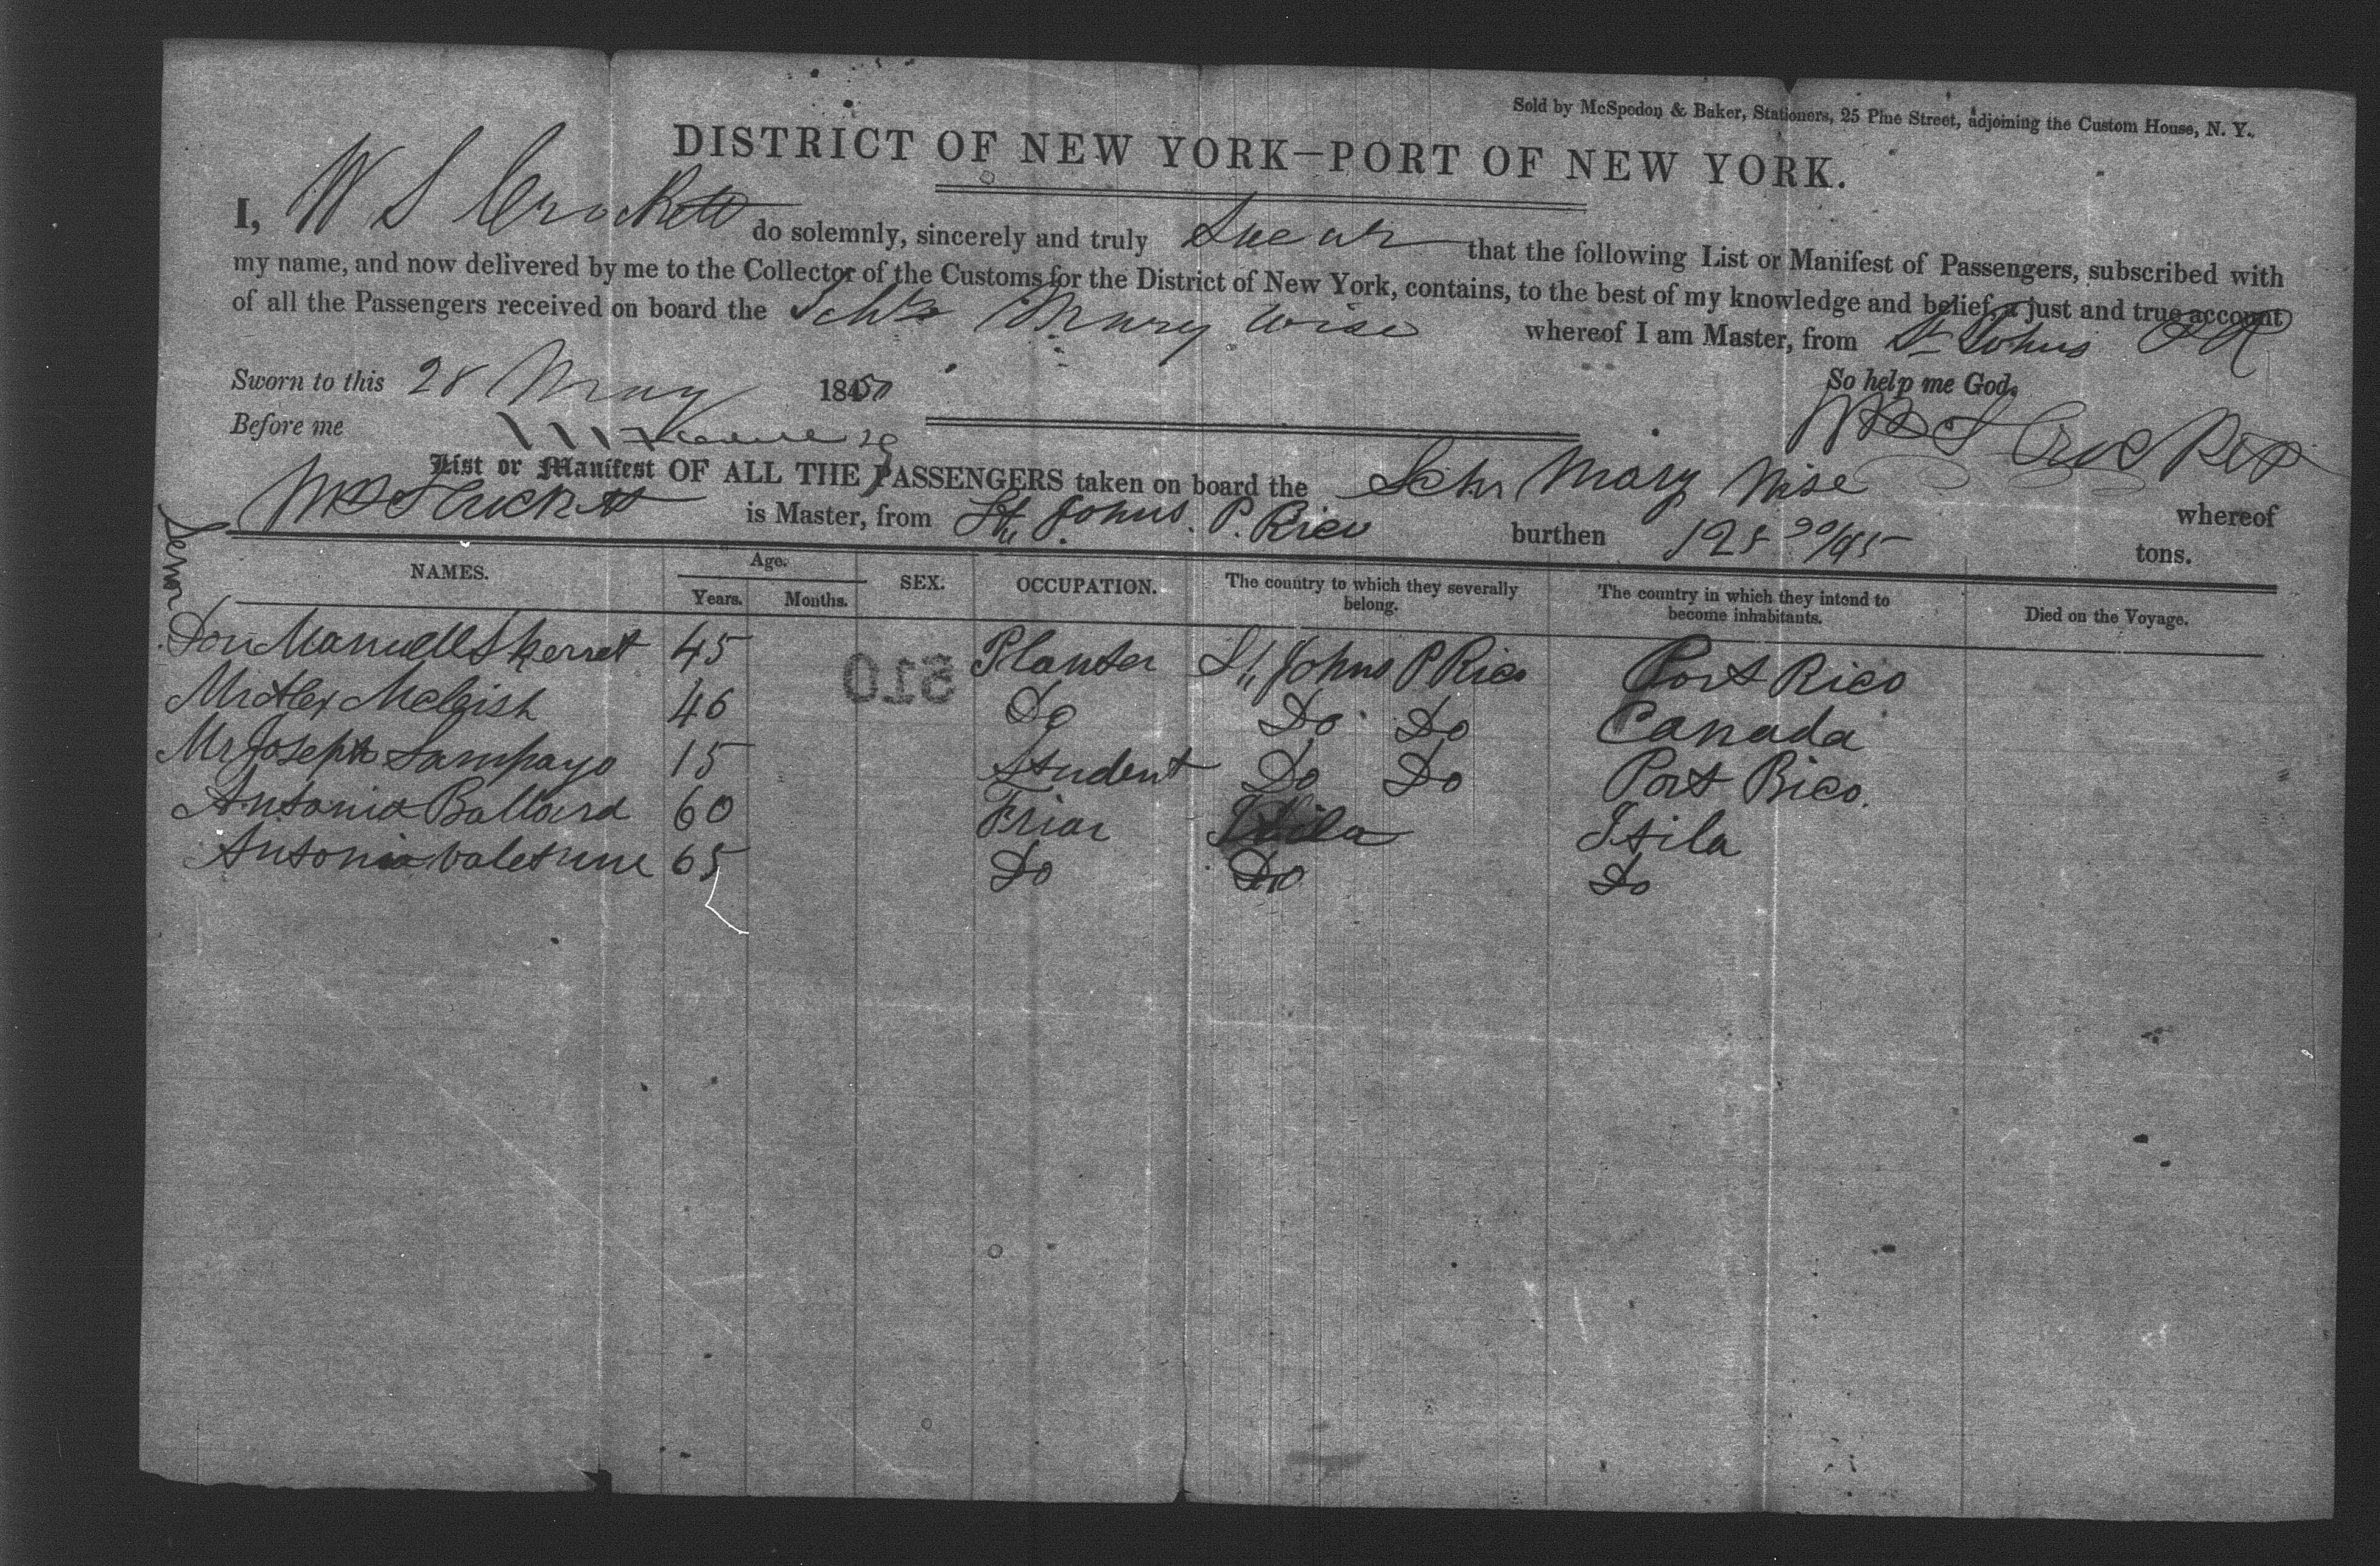 Sold by McSpedon & Baker, Stationers, 25 Pine Street, adjoining the Custom House, N. Y.
DISTRICT OF NEW YORK—PORT OF NEW YORK.
I, W S Crockett do solemnly, sincerely and truly Swear that the following List or Manifest of Passengers, subscribed with
my name, and now delivered by me to the Collector of the Customs for the District of New York, contains, to the best of my knowledge and belief, a just and true account
of all the Passengers received on board the Schr Mary Wise whereof I am Master, from St Johns PR
Sworn to this 28 May 1850 So help me God.
Before me Wm S Crockett
List or Manifest OF ALL THE PASSENGERS taken on board the Schr Mary Wise whereof
Wm S Crockett is Master, from St Johns. P. Rico burthen 125 90/95 tons.
Senor
NAMES. Age. SEX. OCCUPATION. The country to which they severally belong. The country in which they intend to become inhabitants. Died on the Voyage.
Years. Months.
Don Manuell Skerret 45 Planter St Johns P Rico Port Rico
Mr Alex 46 Do Do Do Canada
Mr Joseph Sampayo 15 Student Do Do Port Rico.
Antonio Ballard 60 Friar Itila Itila
Antonio 65 Do Do Do
510